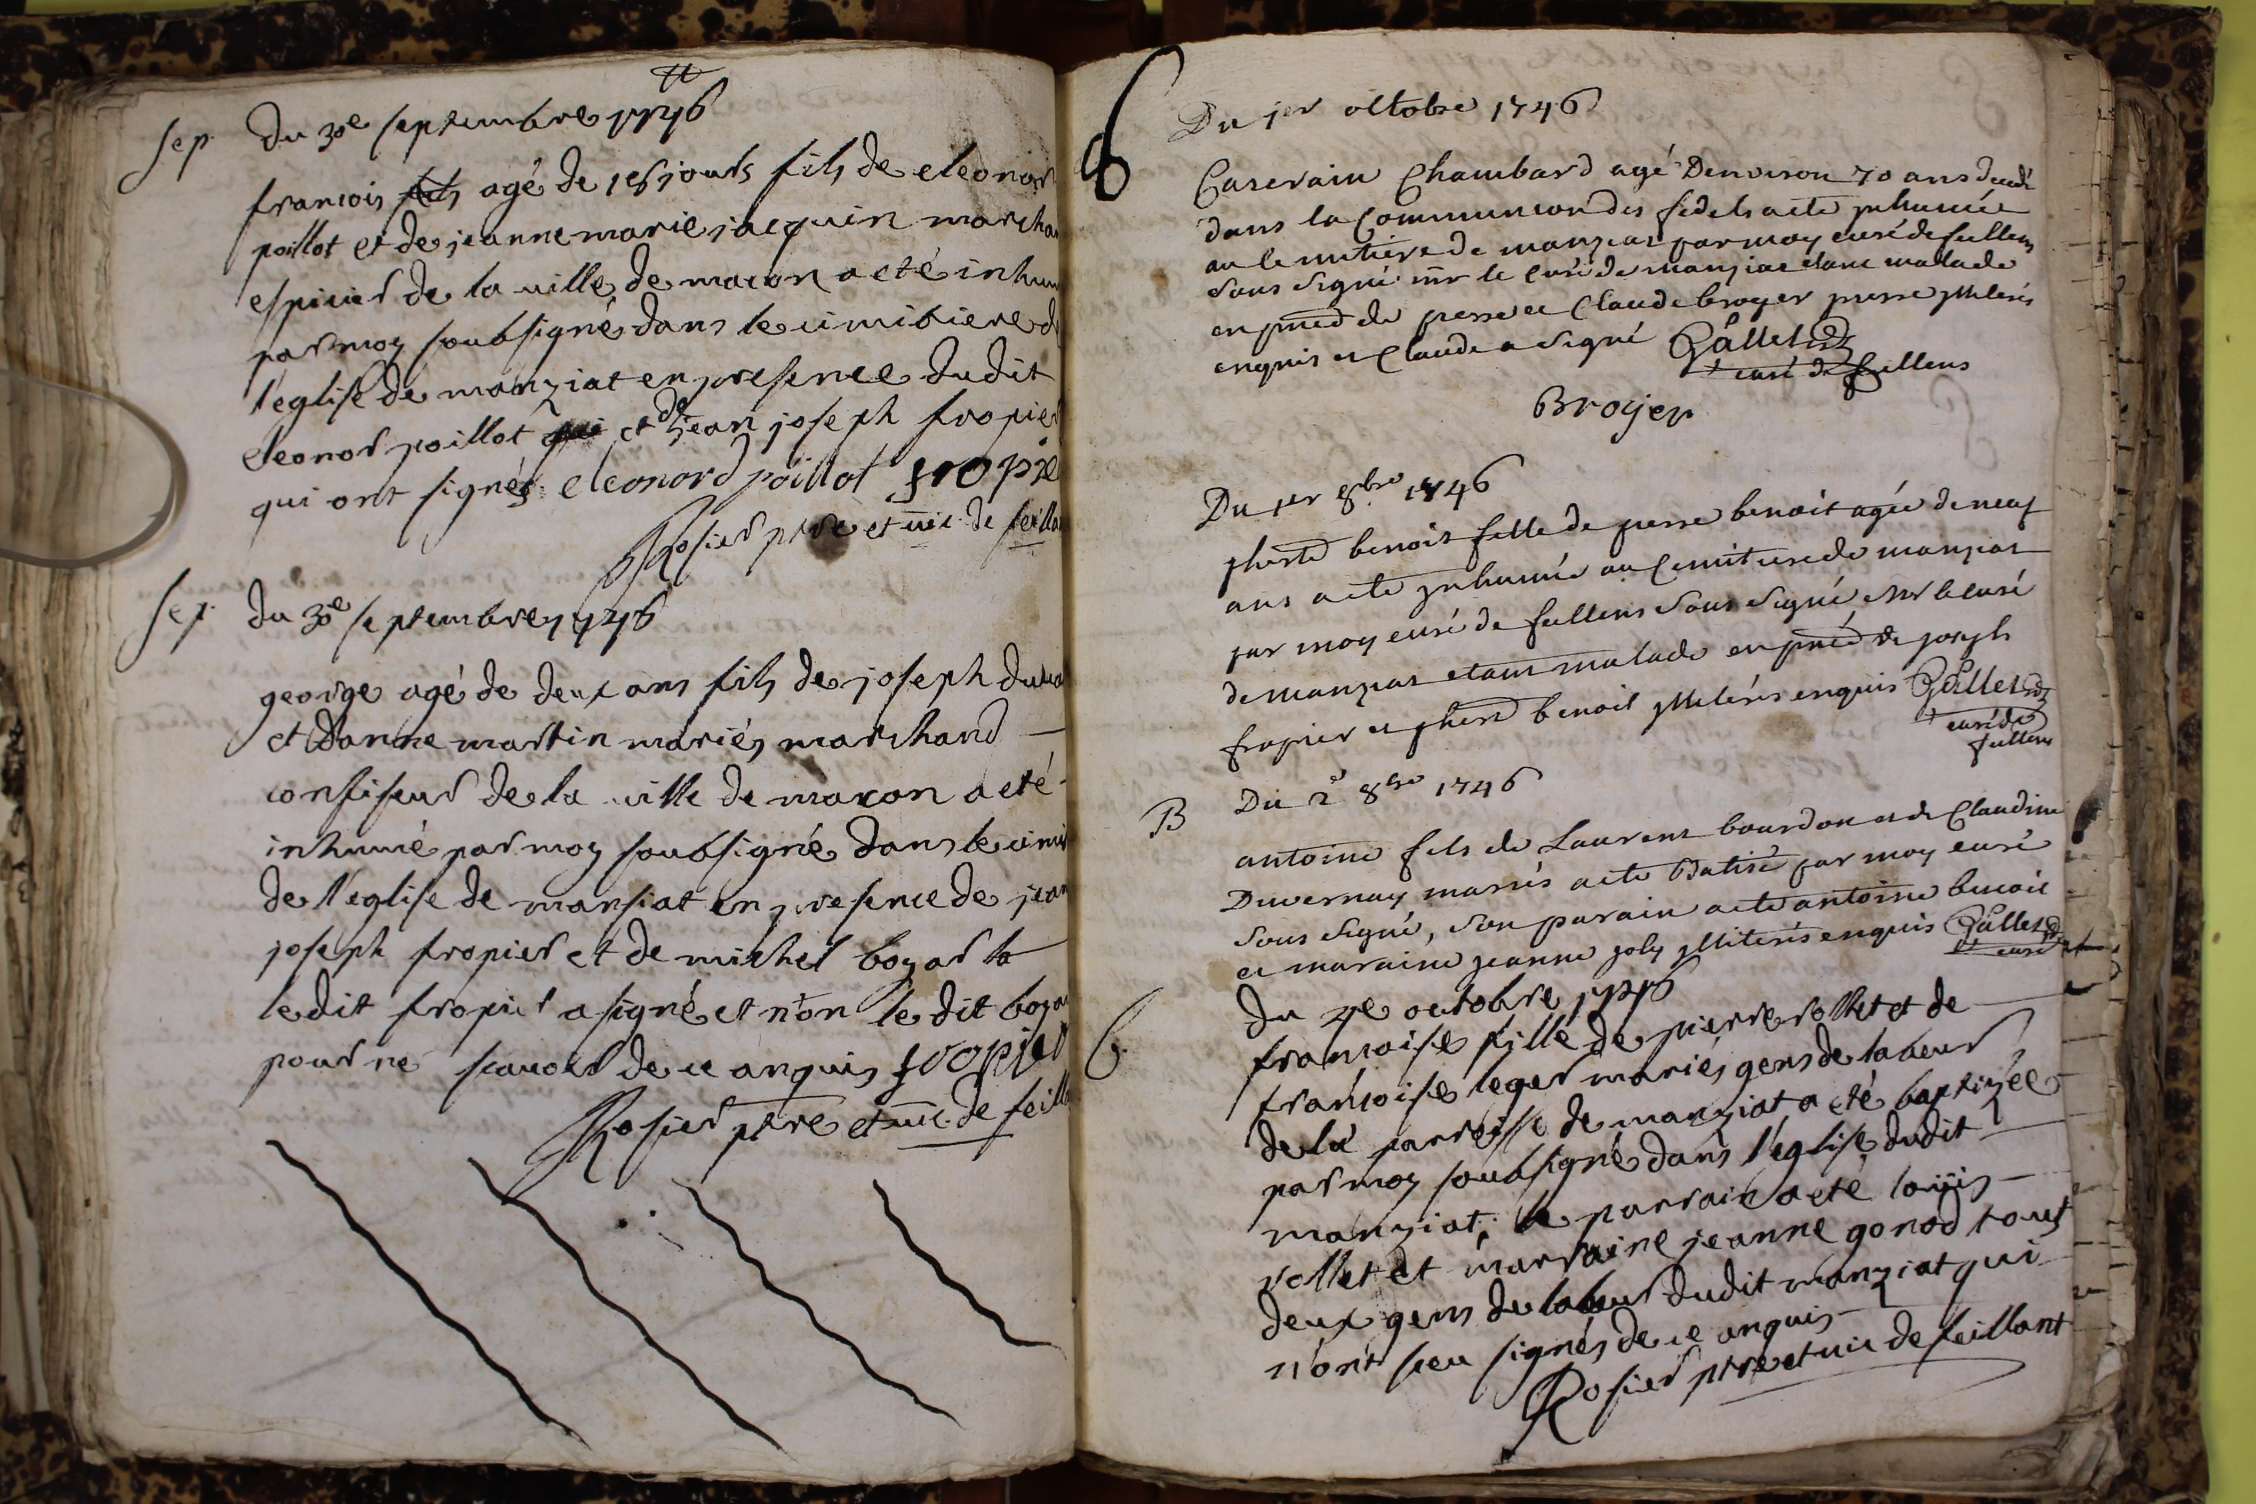 sep. du 30e septembre 1746
francois fils agé de 16 jours fils de eleonor
poillot et de jeanne marie jacquin marchan
espicier de la ville de macon a eté inhum
par moy soubsigné dans le cimitiere d
l'eglise de manziat en presence dudit
eleonor poillot et de jean joseph fropier
qui ont signés eleonord poillot fropie
Rosier ptre et vic. de feilla
sep. du 30e septembre 1746
george agé de deux ans fils de joseph
et danne martin mariés marchand
confiseur de la ville de macon a eté
inhumé par moy soubsigné dans le cimit
de l'eglise de mansiat en presence de jean
joseph fropier et de michel boyar la
ledit fropier a signé et non le dit boya
pour ne scauoir de ce anquis fropier
Rosier ptre et vic. de feilla
Du 1er octobre 1746
Chambard agé Denviron 70 ans
dans la Communion des fidels a eté inhumé
au Cemitiere de manziat par moy curé de fullens
sous signé mr le curé de manziat etant malade
en pnce de pierre et Claude broyer pierre illiterés
enquis et Claude a signé Gallet
curé de fullens
Broyer
Du 1er 8bre 1746
benoit fille de pierre benoit agée de neuf
ans a eté inhumée au Cemitiere de manziat
par moy curé de fullens sous signé mr le curé
de manziat etant malade en pnce de joseph
fropier et benoit illiterés enquis Gallet
curé de
fullens
B Du 2e 8bre 1746
antoine fils de Laurent bourdon et de Claudine
Duvernay mariés a eté Batisé par moy curé
sous signé, son parain a eté antoine benoit
et maraine jeanne joly illiterés enquis Gallet
curé
du 4e octobre 1746
francoise fille de pierre vollet et de
francoise leger mariés gens de labeur
de la parroisse de manziat a eté baptizée
par moy soubsigné dans l'eglise dudit
manziat; le parrain a eté louis
vollet et marraine jeanne gonod tous
deux gens de labeur dudit manziat qui
n'ont sceu signés de ce anquis
Rosier ptre et vic de feillant